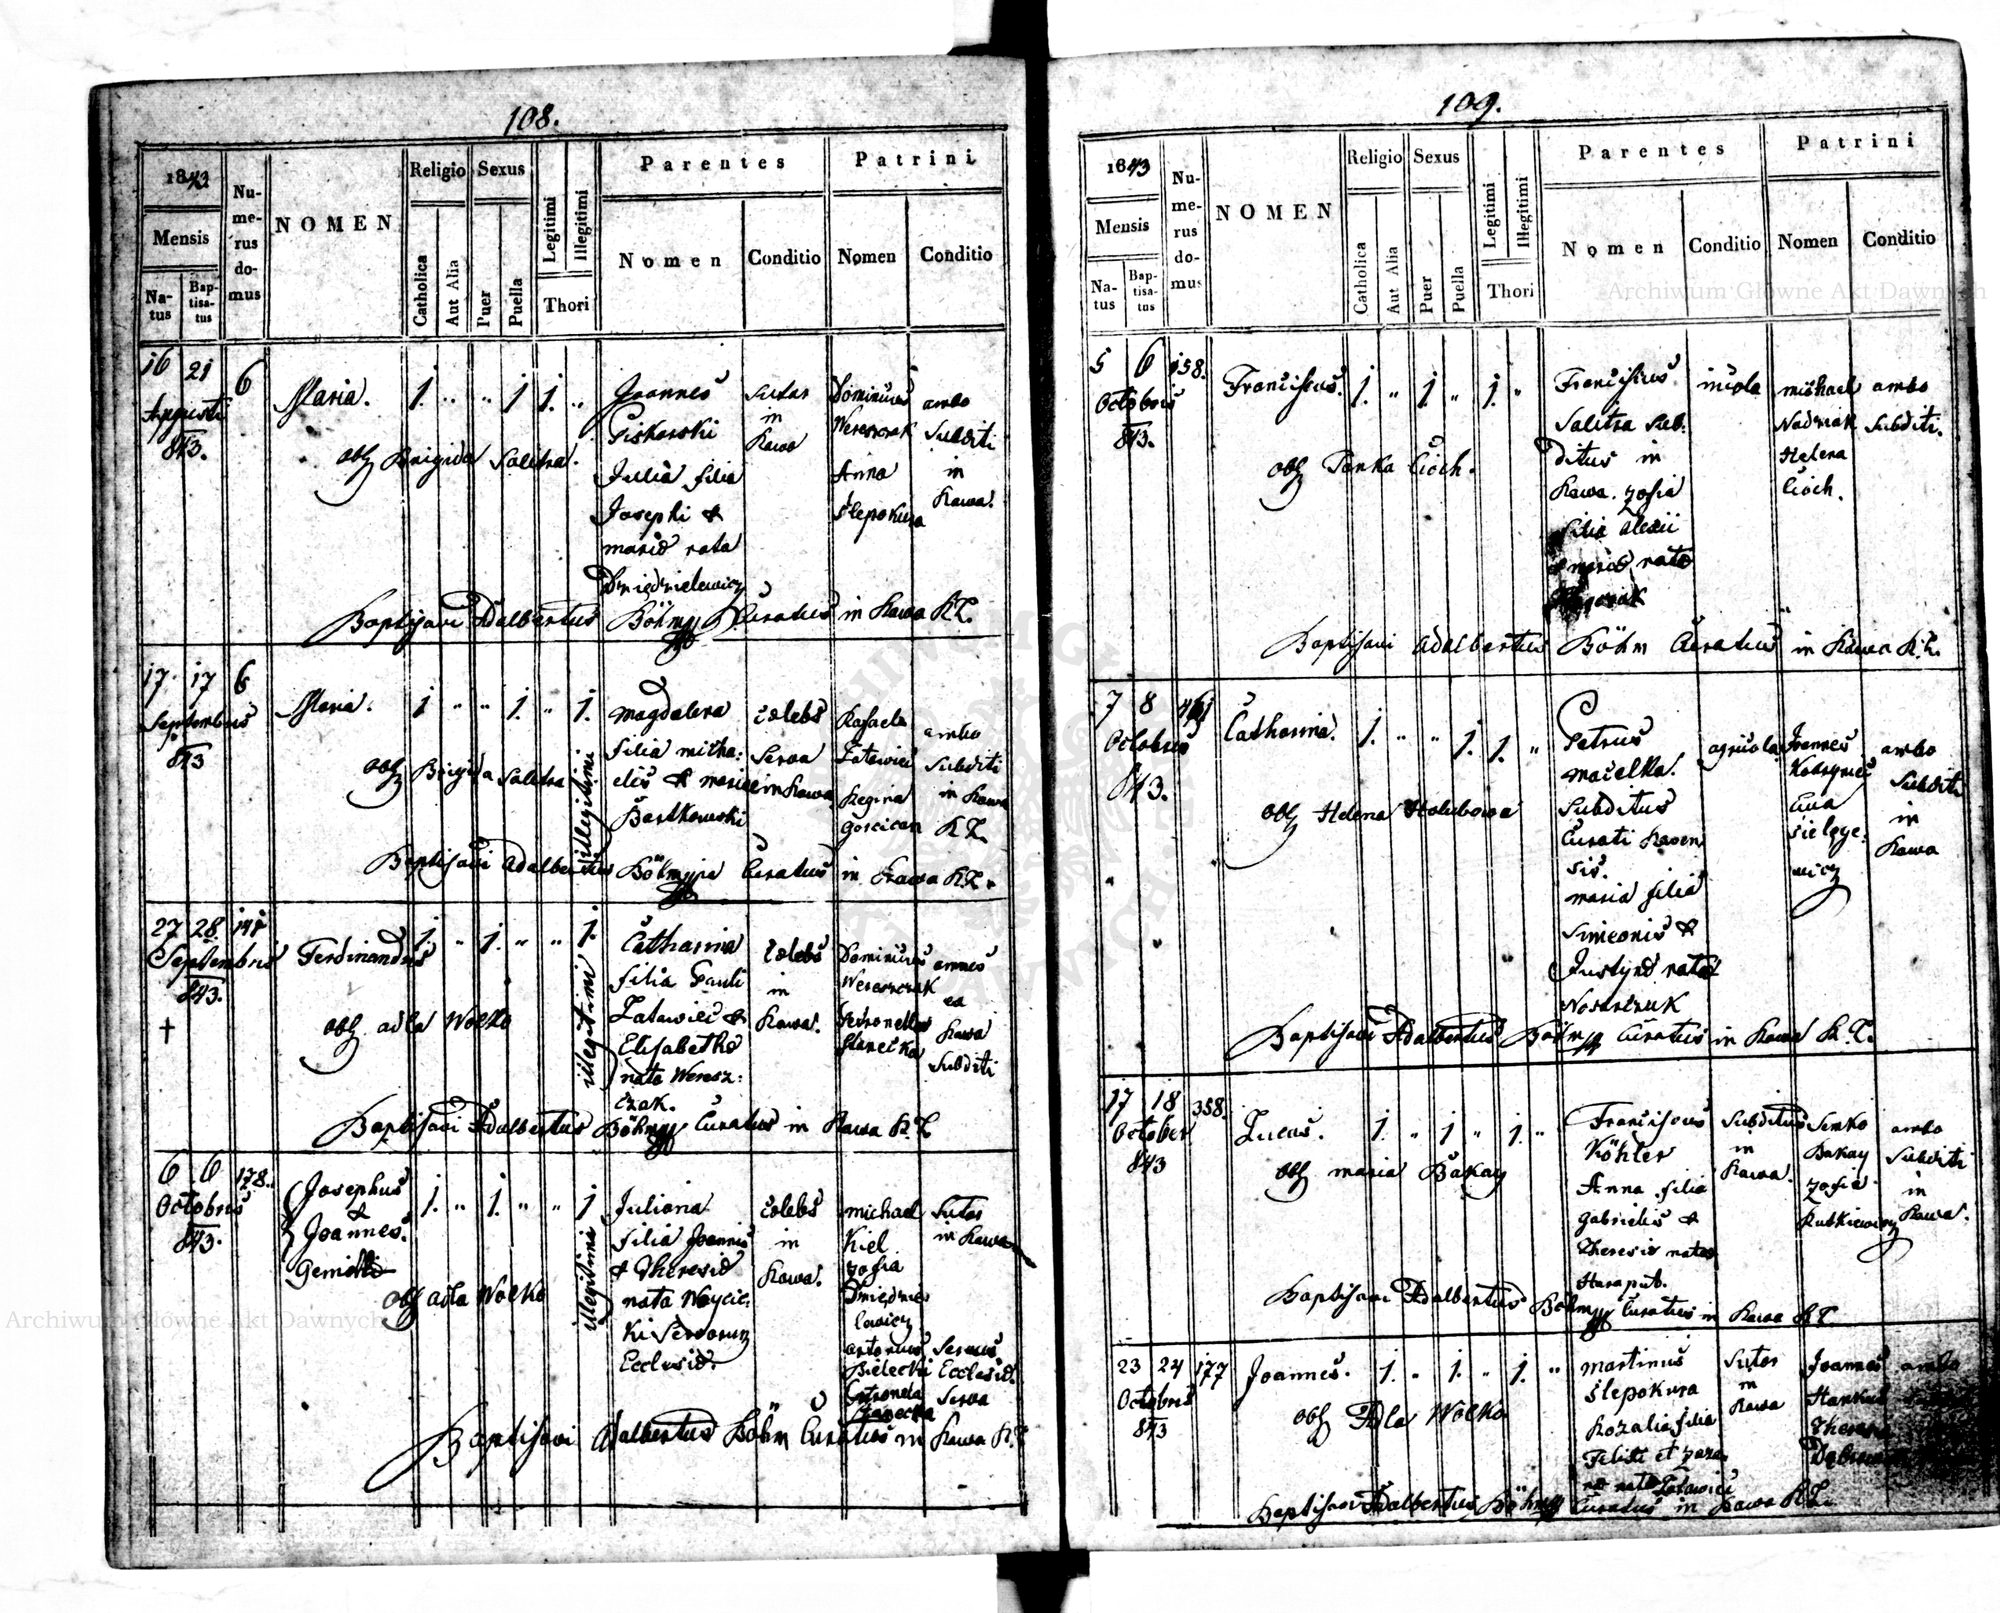 108.
1843
Mensis
Na-
tus
Bap-
tisa-
tus
Nu-
me-
rus
do-
mus
NOMEN
Religio
Catholica
Aut Alia
Sexus
Puer
Puella
Legitimi
Illegitimi
Thori
Parentes
Nomen
Conditio
Patrini
Nomen
Conditio
16 21 6
Augusti
843.
Maria. 1. " " 1 1. "
obs Brigida Salitra.
Joannes
Piskorski
Julia filia
Josephi &
maria nata
Dzwiedzielewicz
Sutor
in
Rawa
Dominicus
Wereszczak
Anna
Slepokura
ambo
Subditi
in
Rawa.
Baptisavi Adalbertus Böhm Curatus in Rawa R.L.
17. 17 6
Septembris
843
Maria. 1 " " 1. " 1.
illegitimi
obs Brigida Salitra
Magdalena
filia micha:
elis & mariae
Bartkowski
Coelebs
Serva
in Rawa
Rafaela
Zatawiec
Regina
Goscican
ambo
Subditi
in Rawa
R L
Baptisavi Adalbertus Böhm Curatus in Rawa R.L.
27 28
Septembris
843.
†
Ferdinandus 1. " 1. " " 1.
illegitimi
obs adla Wolko
Catharina
filia Pauli
Zatawiec &
Elisabetha
nata Weresz:
czak.
Coelebs
in
Rawa.
Dominicus
Wereszczak
Petronella
Stanecka
omnes
ea
Rawa
Subditi
Baptisavi Adalbertus Böhm Curatus in Rawa R.L
6 6 178.
Octobris
843.
Josephus
&
Joannes.
Gemelli
1. " 1. " " 1
illegitimi
obs adla Wolko
Juliana
filia Joannis
& Theresia
nata Woycic:
ki Servorum
Ecclesia.
Coelebs
in
Rawa.
michael
Kiel
zofia
Dzwiedzie
lewicz
antonius
Bielecki
Petronela
Stanecka
Sutor
in Rawa
Servus
Ecclesia.
Serva
Baptisavi Adalbertus Böhm Curatus in Rawa R.L
109.
1843
Mensis
Na-
tus
Bap-
tisa-
tus
Nu-
me-
rus
do-
mus
NOMEN
Religio
Catholica
Aut Alia
Sexus
Puer
Puella
Legitimi
Illegitimi
Thori
Parentes
Nomen
Conditio
Patrini
Nomen
Conditio
5 6 158.
Octobris
843.
Franciscus. 1. " 1. " 1. "
obs Panka Cioch.
Franciscus
Salitra sub:
ditus in
Rawa. zofia
filia alexii
& maria nata
incola
michael
Nadziak
Helena
Cioch.
ambo
Subditi.
Baptisavi Adalbertus Böhm Curatus in Rawa R.L.
7 8
Octobris
843.
Catharina. 1. " " 1. 1. "
obs Helena Holubowa
Petrus
maćelka.
Subditus
Curati Raven
sis.
maria filia
Simeonis &
Justyna nata
agricola
Joannes
ambo
Subditi
in
Rawa
Baptisavi Adalbertus Böhm Curatus in Rawa R.L.
17 18 358.
October
843
Lucas. 1. " 1 " 1. "
obs maria Bakay
Franciscus
Köhler
Anna filia
Gabrielis &
Theresia nata
Haraput.
Subditus
in
Rawa.
Semko
Bakay
zofia
Rutkiewicz
ambo
Subditi
in
Rawa.
Baptisavi Adalbertus Böhm Curatus in Rawa R L
23 24 177
Octobris
843
Joannes. 1. " 1. " 1. "
obs Adla Wolko
Martinus
Slepokura
Rozalia filia
Felicis et Barba
ra nata Zatawiec
Sutor
in
Rawa
Joannes
Theresa
ambo
Baptisavi Adalbertus Böhm Curatus in Rawa R.L.
Archiwum Główne Akt Dawnych
Archiwum Główne Akt Dawnych